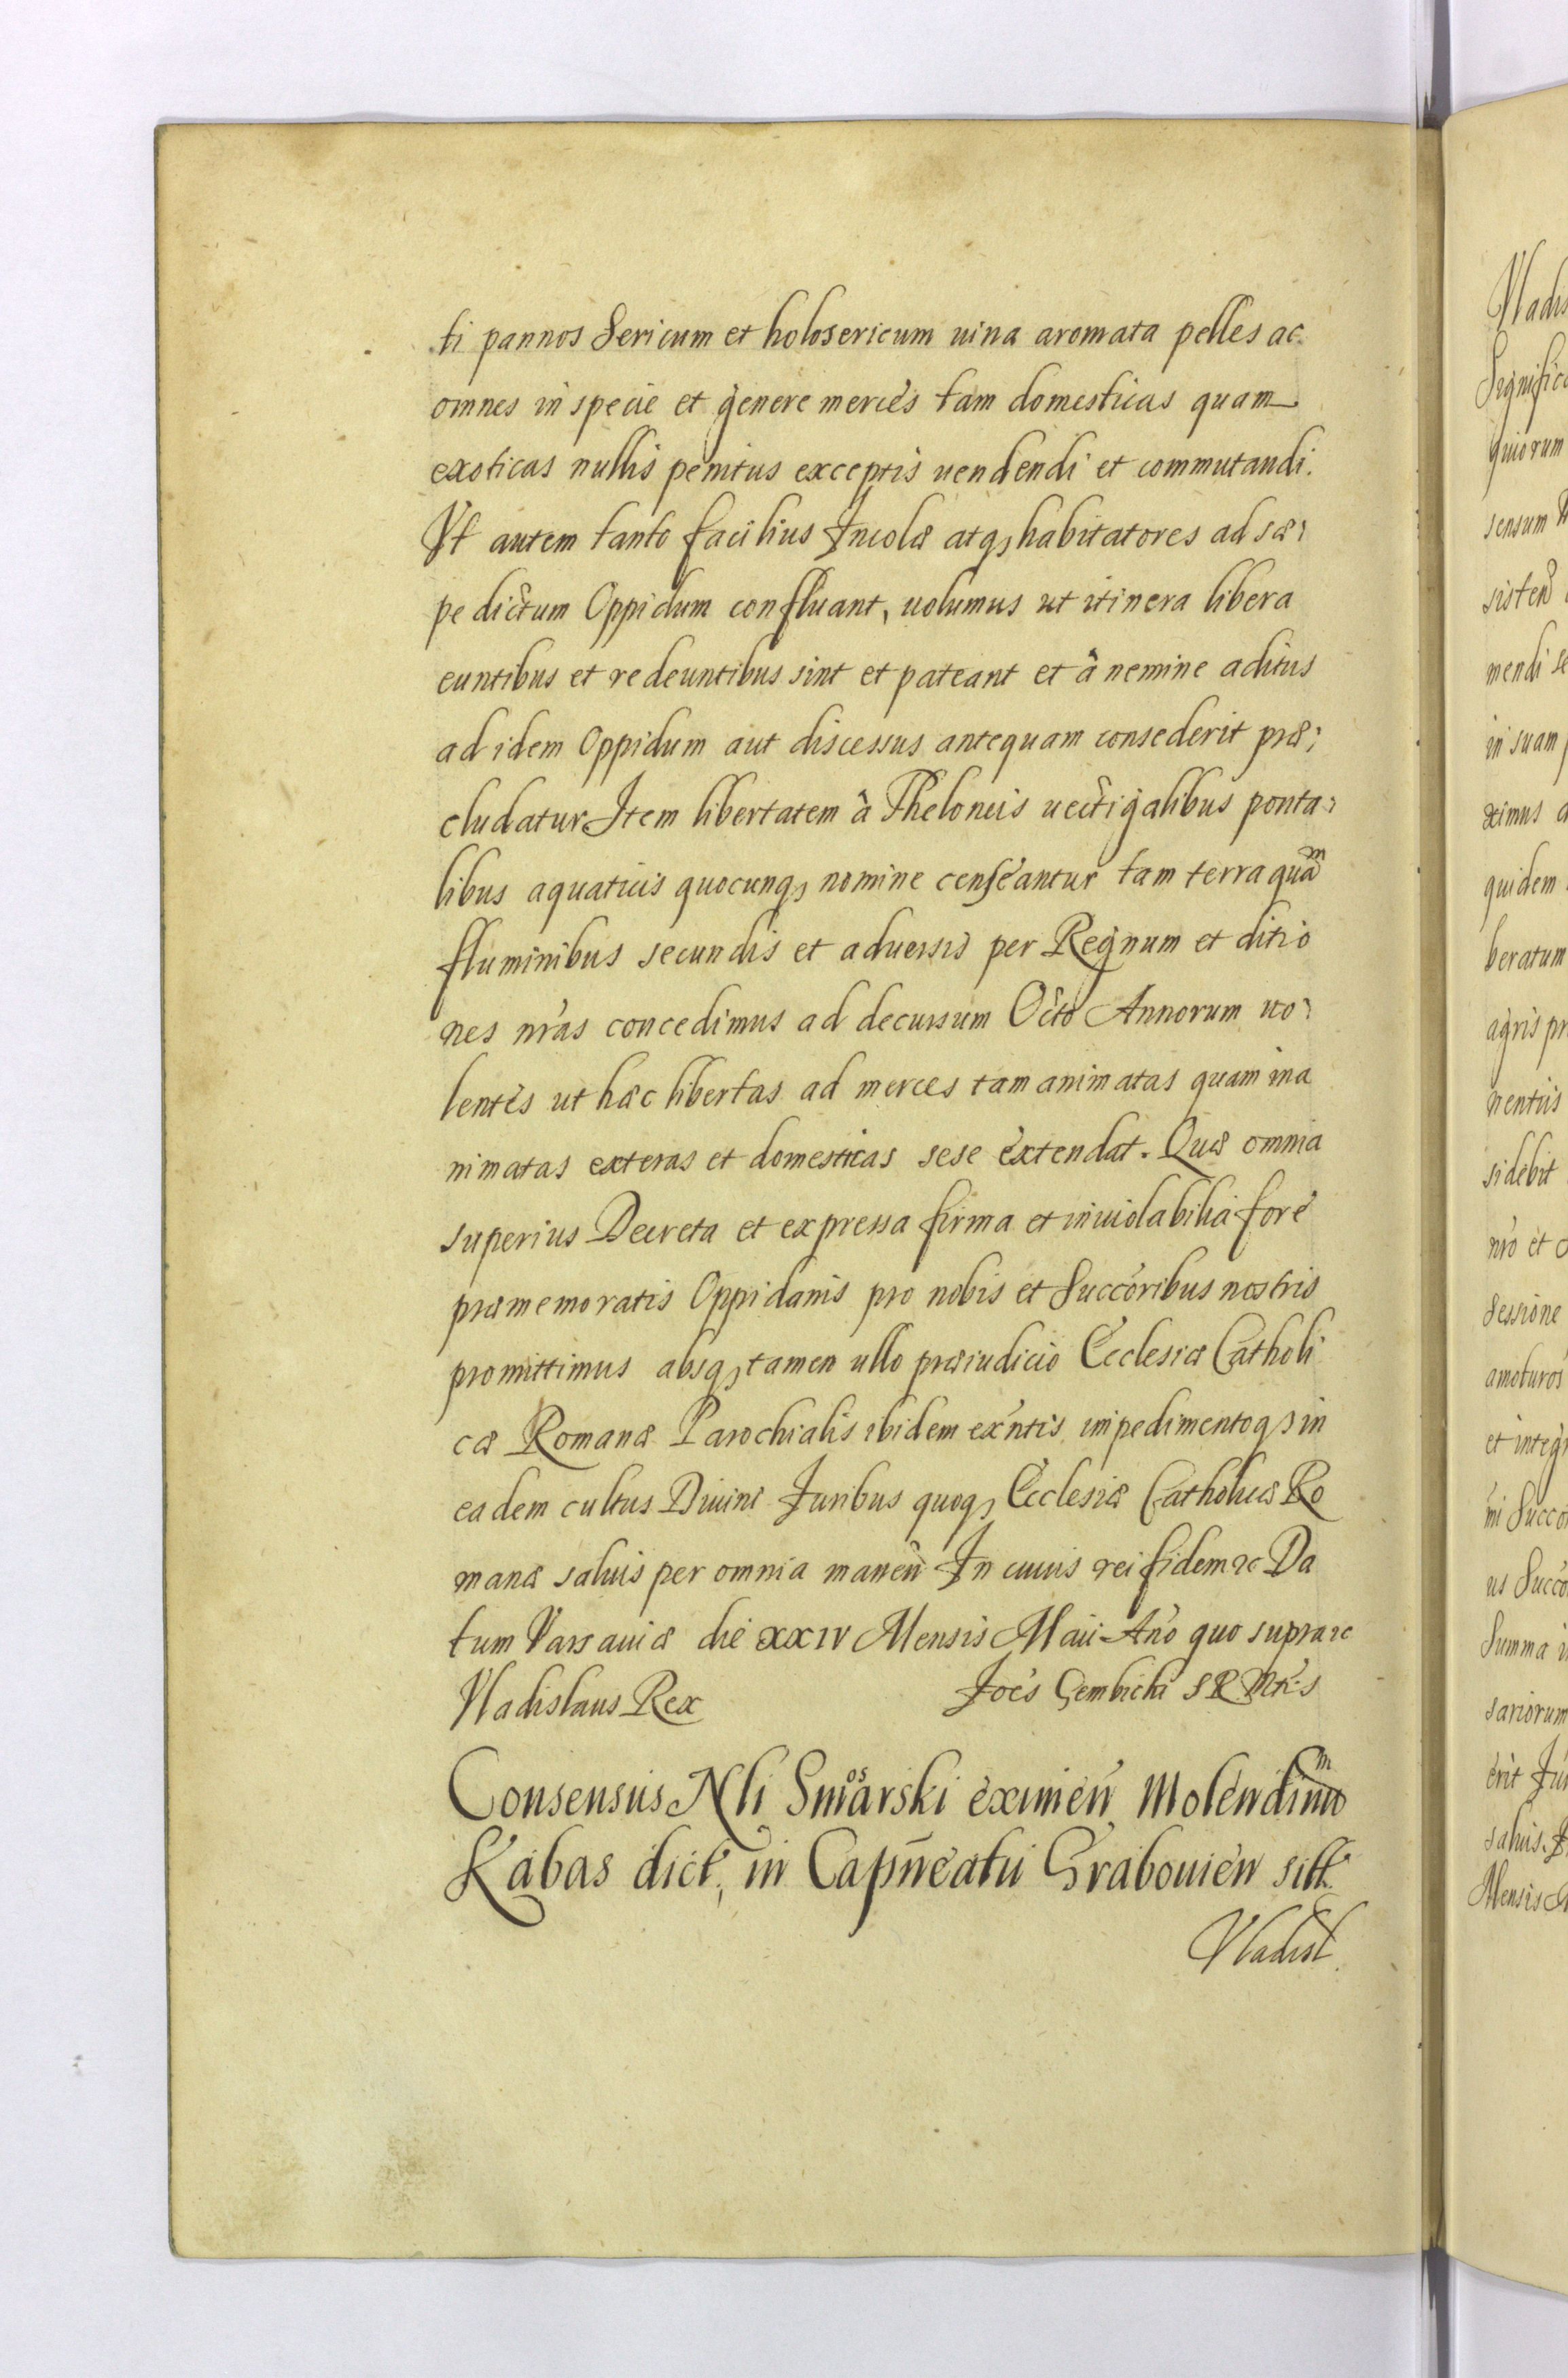 ti pannos Sericum et holosericum uina aromata pelles ac
omnes in specie et genere merces tam domesticas quam
exoticas nullis penitus exceptis uendendi et commutandi.
Vt autem tanto facilius Incolæ atq, habitatores ad sæ:
pe dictum Oppidum confluant, uolumus ut itinera libera
euntibus et redeuntibus sint et pateant et à nemine aditus
ad idem Oppidum aut discessus antequam consederit præ:
cludatur Item libertatem à Theloneis uectigalibus ponta:
libus aquaticis quocunq, nomine censeantur tam terra quam
fluminibus secundis et aduersis per Regnum et ditio
nes nras concedimus ad decursum Octo Annorum uo:
lentes ut hæc libertas ad merces tam animatas quam ina
nimatas exteras et domesticas sese extendat. Quæ omnia
superius Decreta et expressa firma et inuiolabilia fore
præmemoratis Oppidanis pro nobis et Succoribus nostris
promittimus absq, tamen ullo præiudicio Ecclesiæ Catholi
cæ Romanæ Parochialis ibidem exntis impedimentoq, in
eadem cultus Diuini Iuribus quoq, Ecclesiæ Catholicæ Ro
manæ saluis per omnia manen In cuius rei fidem &c Da
tum Varsauiæ die XXIV Mensis Maii Ano quo supra &c
Vladislaus Rex Joes Gembicki S R Mtis
Consensus Nli eximen Molendinum
Kabas dict, in Capneatu Grabouien sitt
Vladisl.
Vladis
Significa
quiorum
sensum
sisten
mendi se
in suam
ximus a
quidem
beratum
agris pr
nentiis
sidebit
nro et
Sessione
amoturos
et integr
ni Succo
us Succo
Summa
sariorum
erit Jur
saluis
Mensis